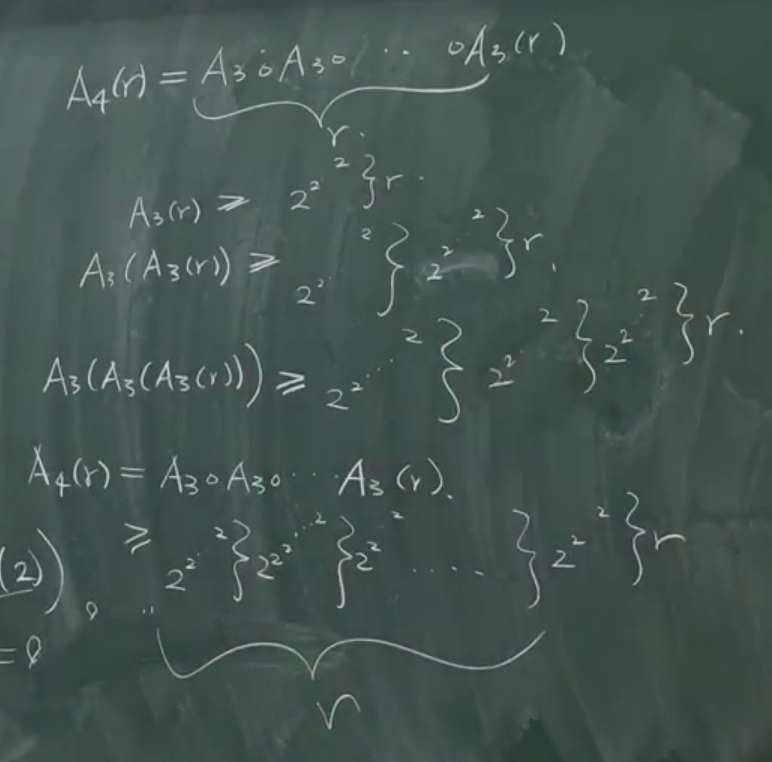 A₄(r) = A₃∘A₃∘ ⋯ ∘A₃(r)
r.
A₃(r) ⩾ 2^2^⋰^2 } r .
A₃(A₃(r)) ⩾ 2^2^⋰^2 } 2^2^⋰^2 } r .
A₃(A₃(A₃(r))) ⩾ 2^2^⋰^2 } 2^2^⋰^2 } 2^2^⋰^2 } r .
A₄(r) = A₃∘A₃∘ ⋯ A₃(r).
⩾ 2^2^⋰^2 } 2^2^2^⋰^2 } 2^2^⋰^2 ..... } 2^2^⋰^2 } r
(2)) .
r